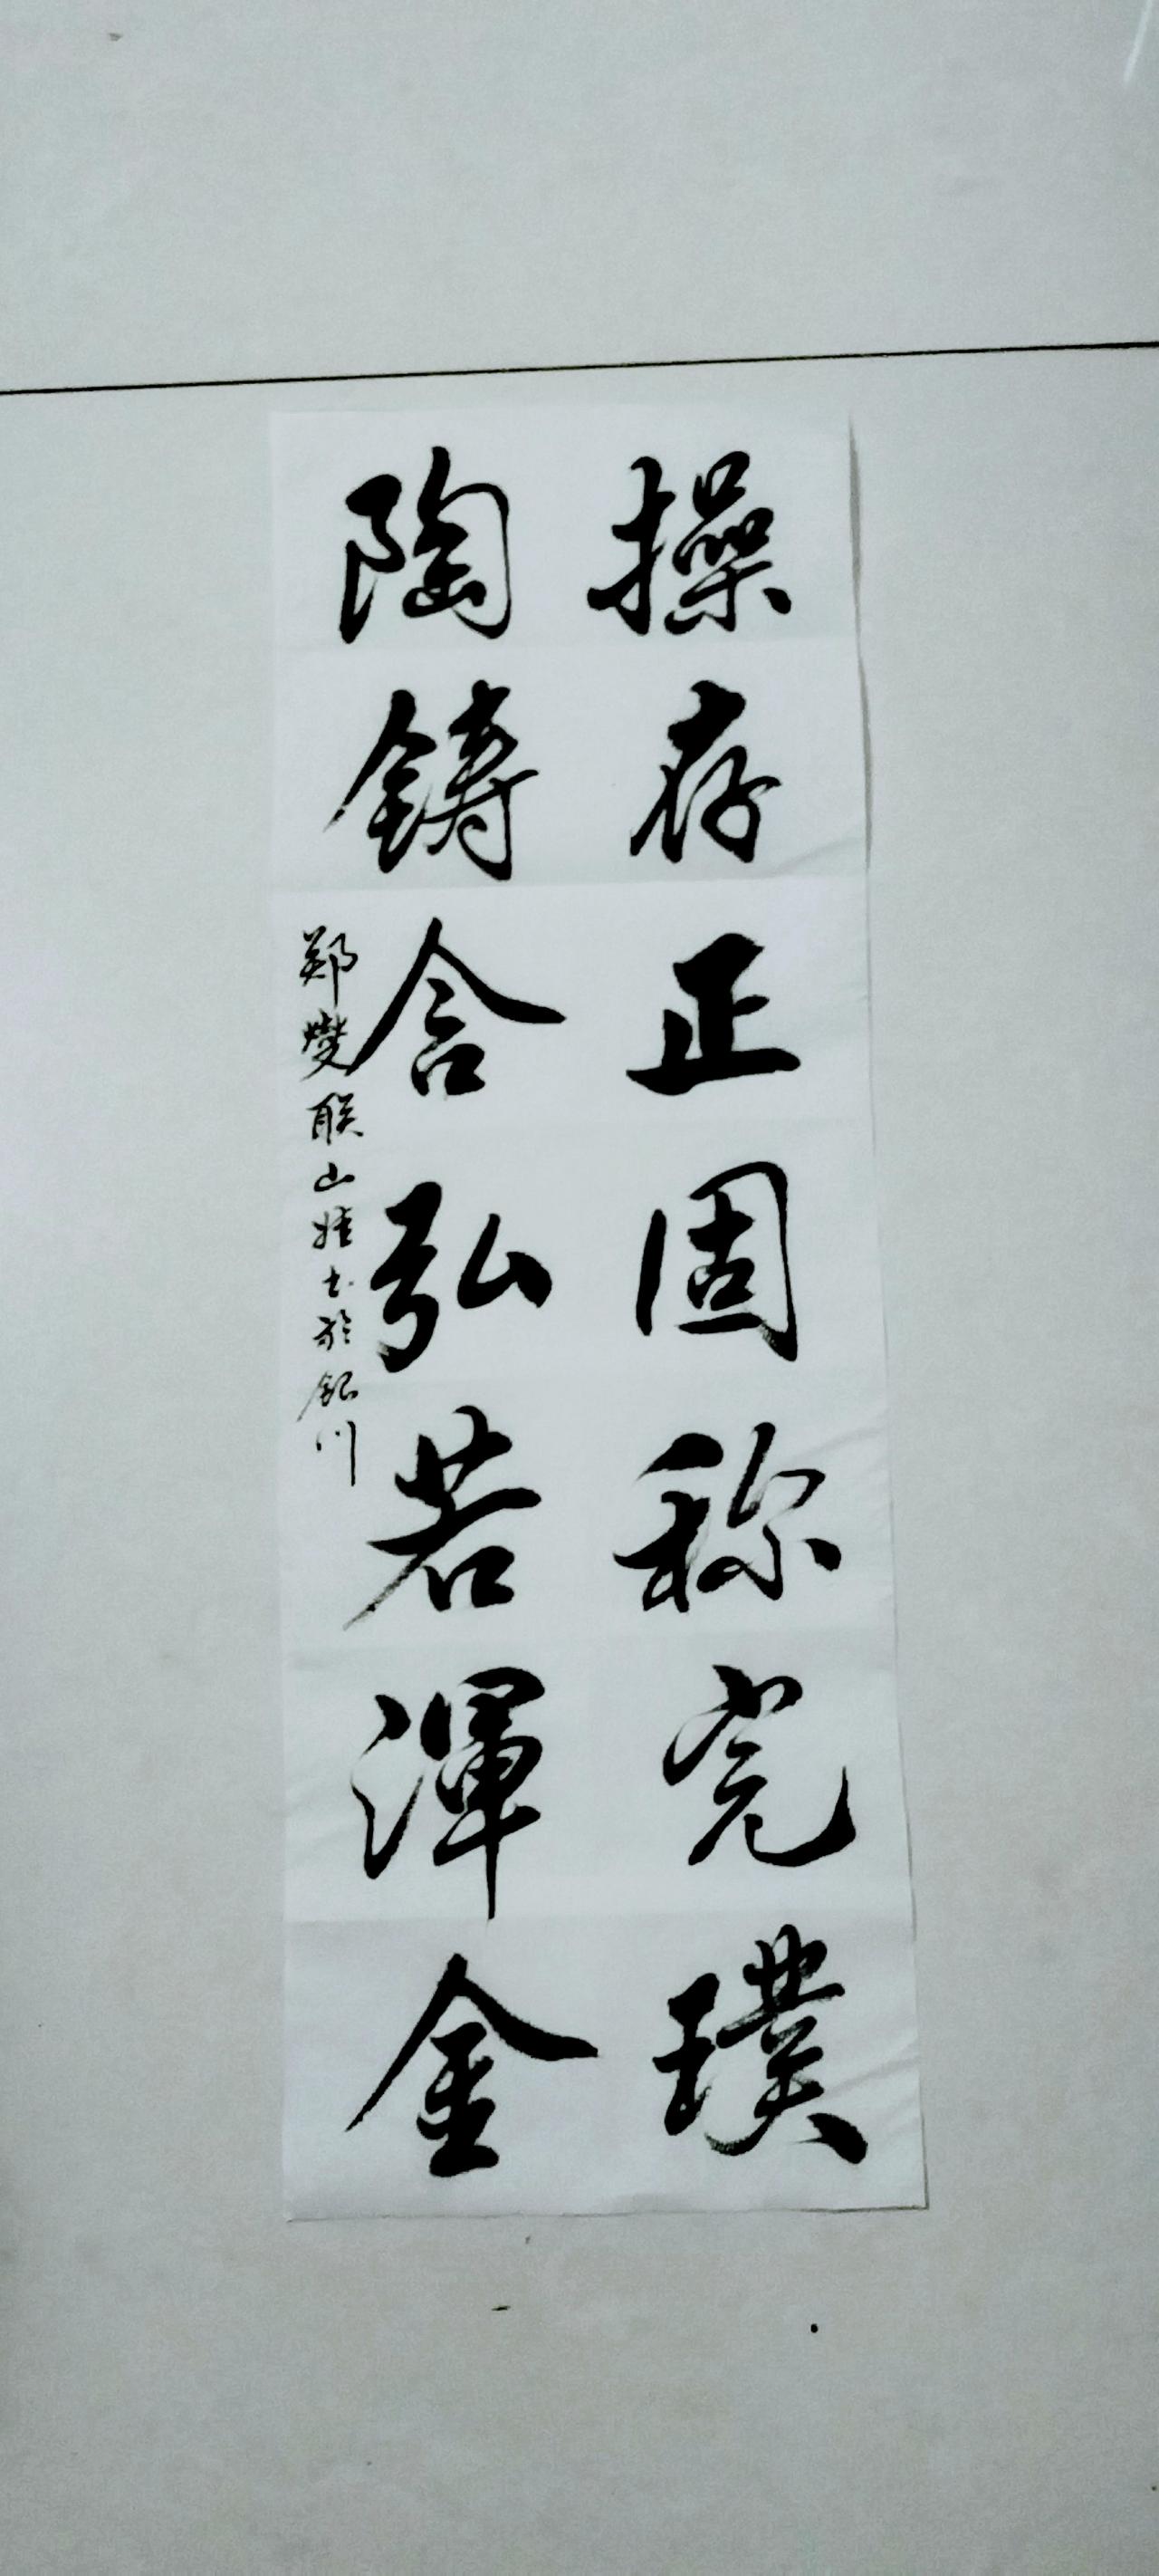 操存正固称完璞
陶鑄含弘若渾金
郑燮联山娃书於银川